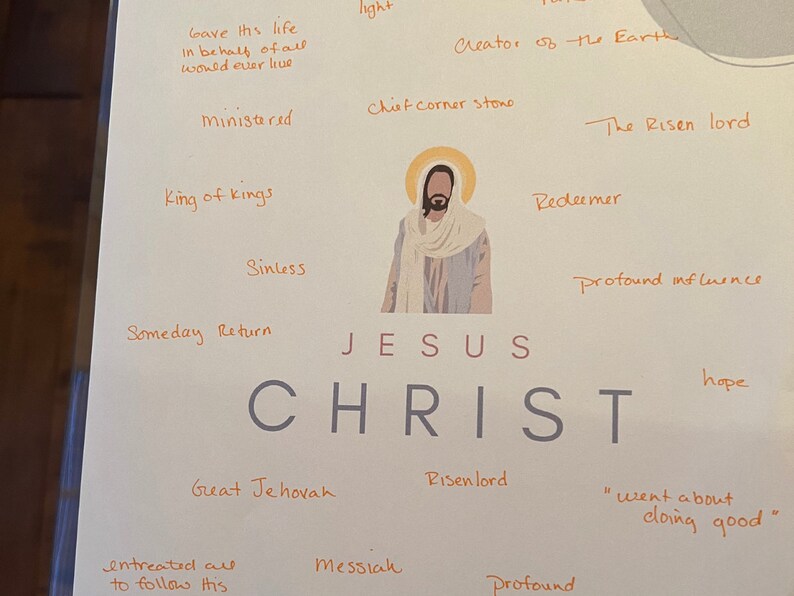 light
Gave His life
in behalf of all
would ever live
Creator of the Earth
Chief corner stone
ministered
The Risen lord
King of kings
Redeemer
Sinless
profound influence
Someday Return
JESUS
hope
CHRIST
Great Jehovah
Risen lord
"went about
doing good"
entreated all
to follow His
Messiah
profound